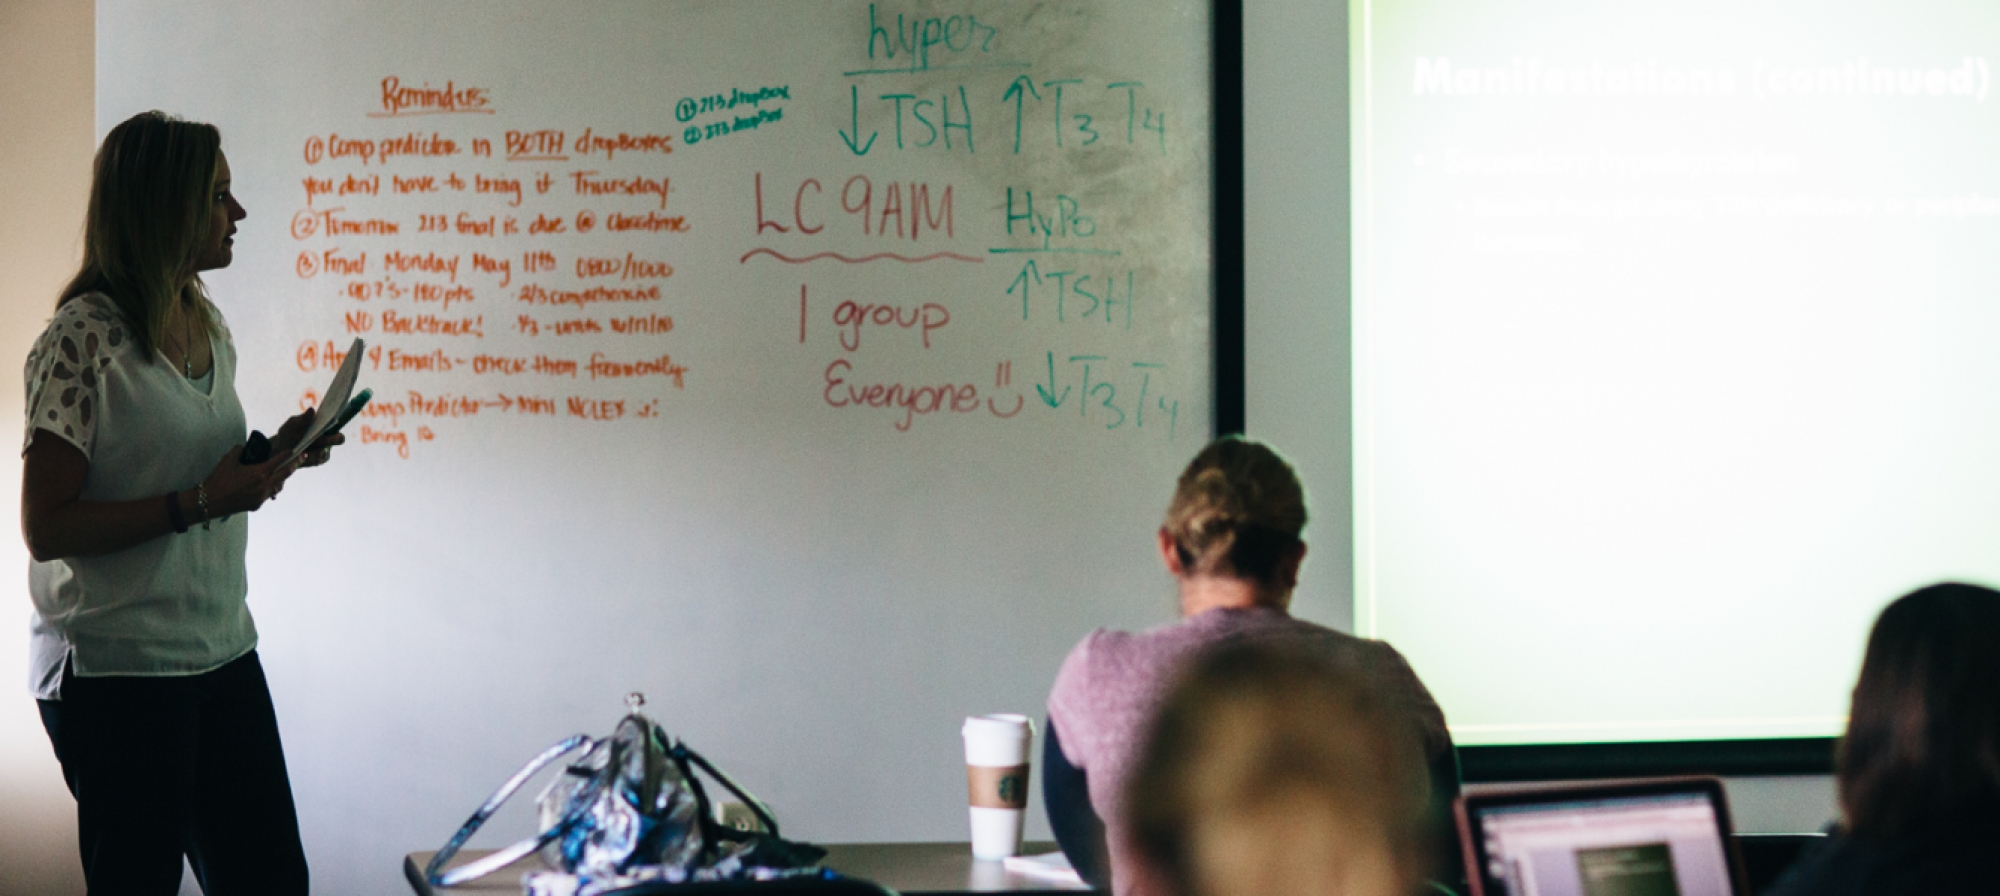 Reminders:
① Comp predictor in BOTH dropboxes
you don't have to bring it Thursday.
② Tomorrow 213 final is due @ classtime
③ Final Monday May 11th 0800/1000
180pts · 2/3 comprehensive
· NO Backtrack! · 1/3 - units
④ & Emails - check them frequently
Comp Predictor → Mini NCLEX
Bring
① 213 dropbox
② 273 dropbox
hyper
↓ TSH ↑ T3 T4
LC 9AM
1 group
Everyone
HyPo
↑ TSH
↓ T3 T4
Manifestations (continued)